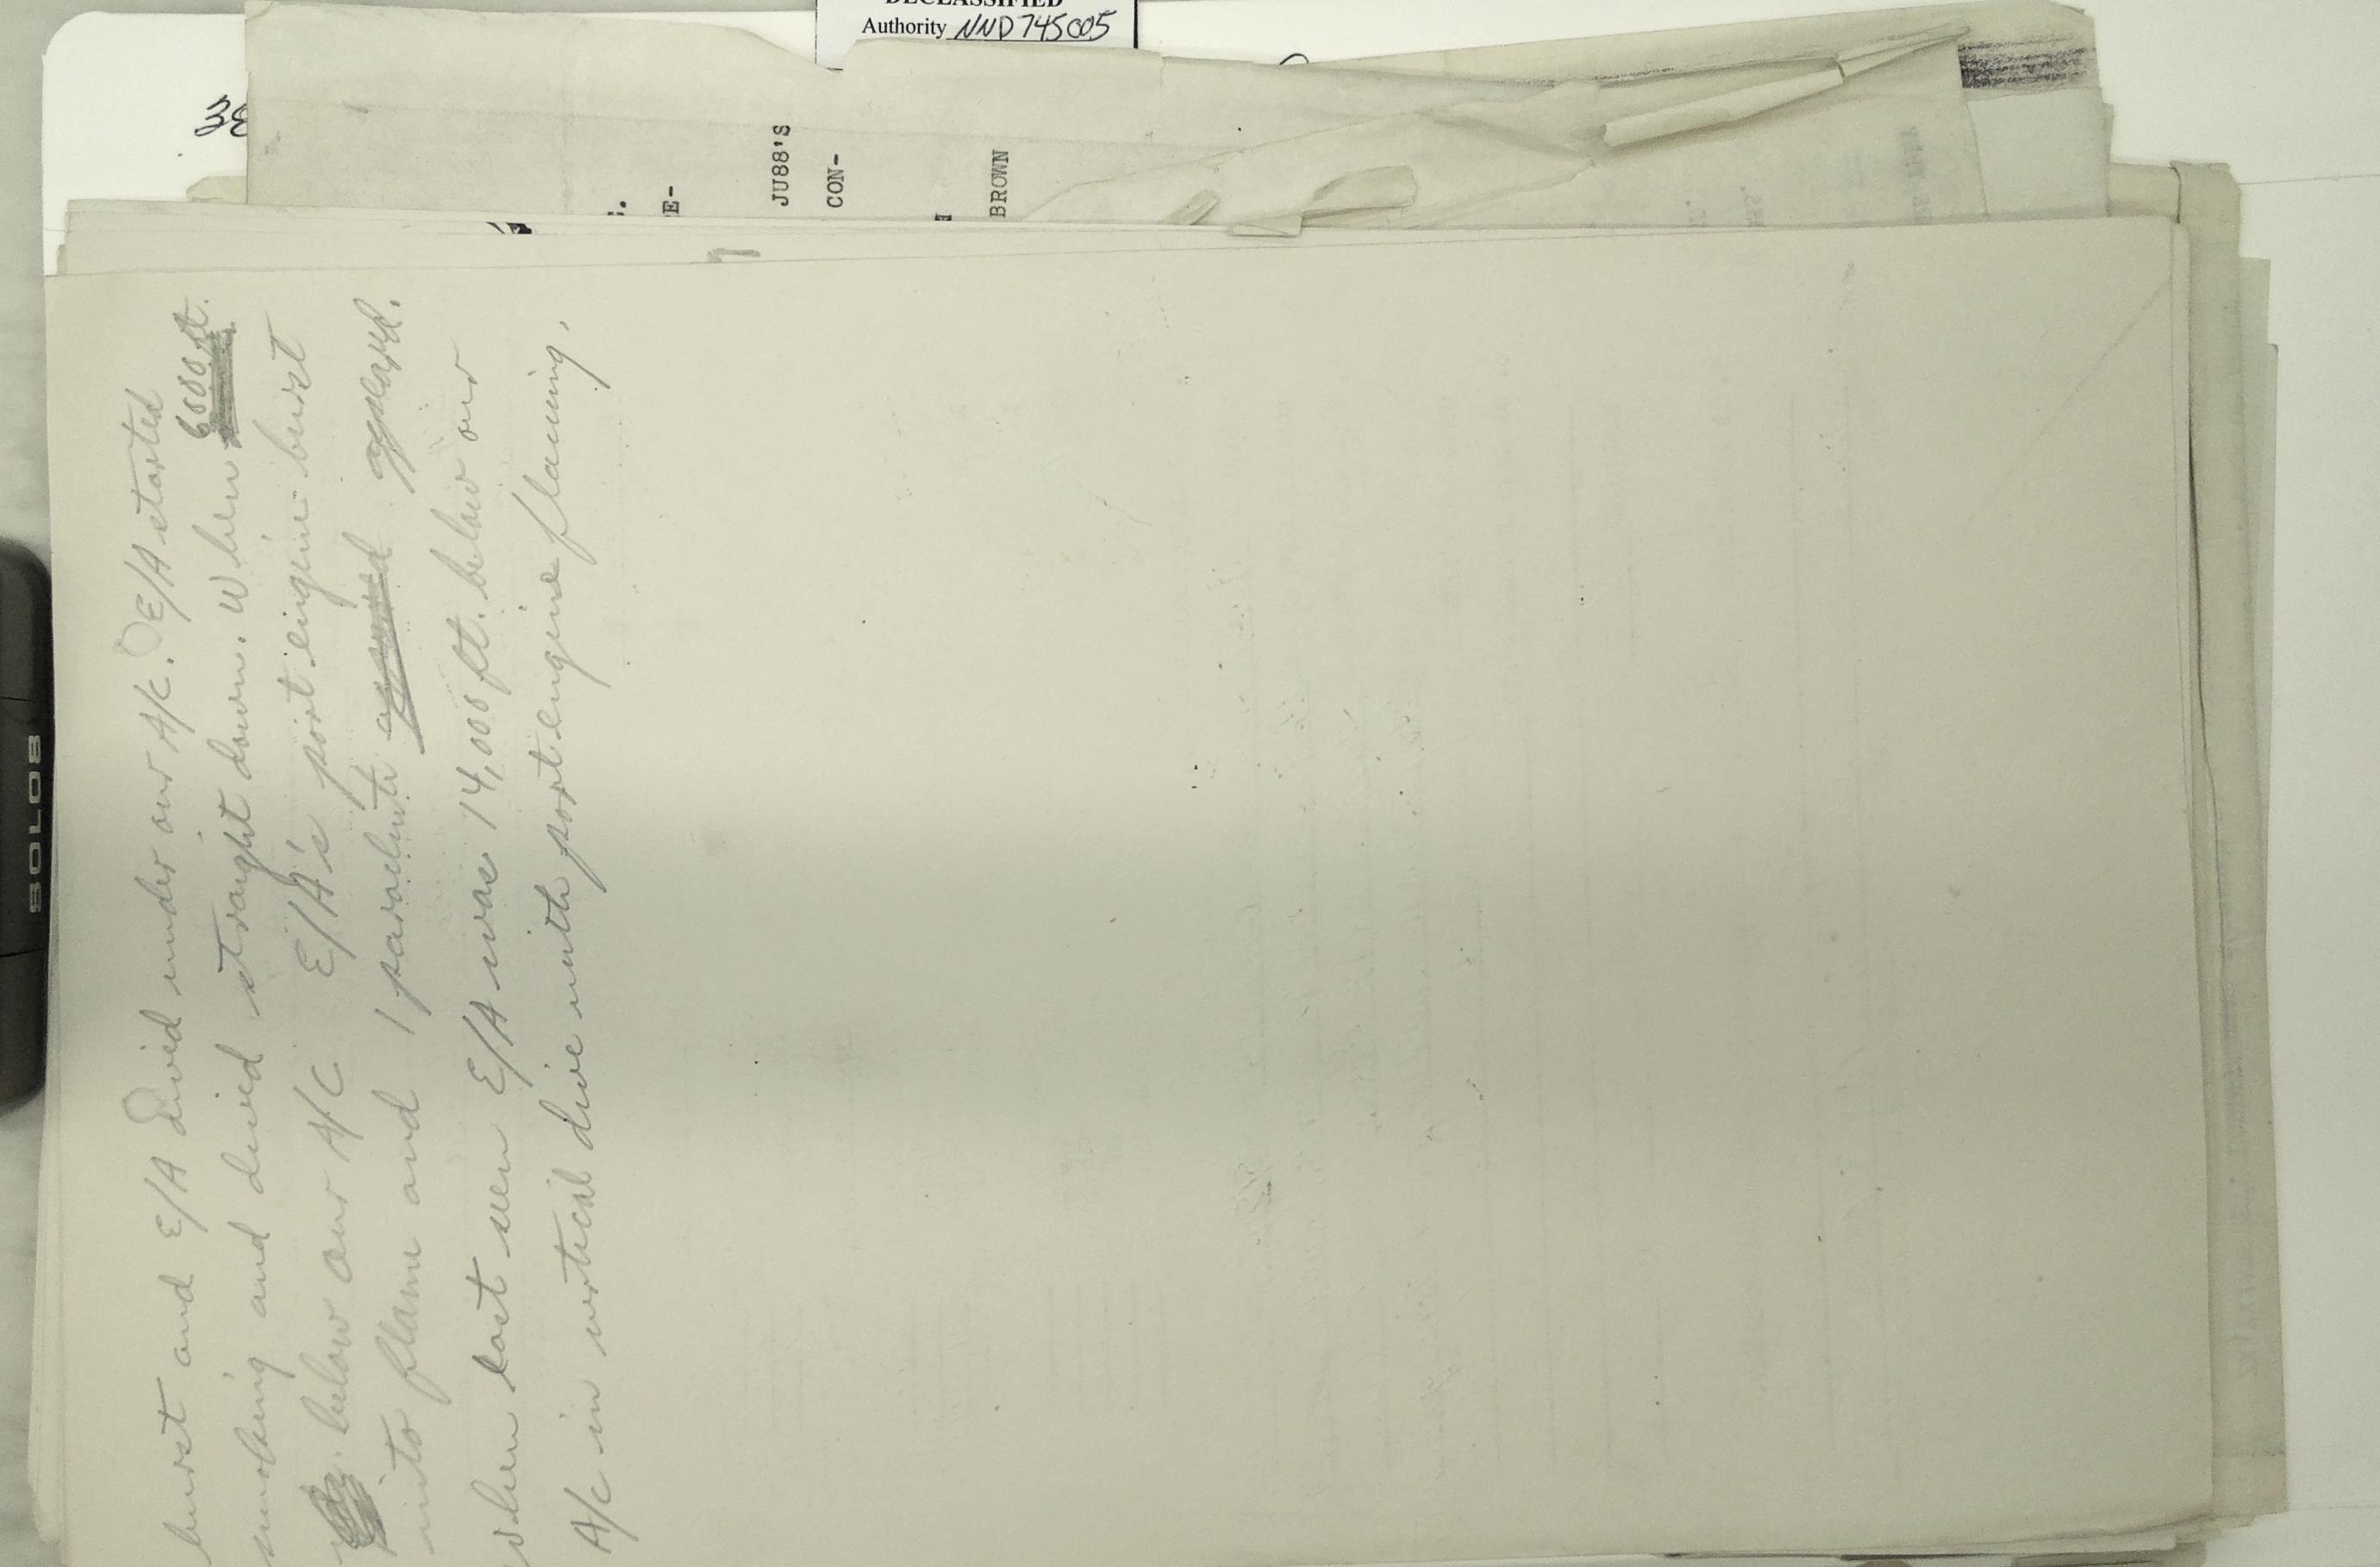 DECLASSIFIED
Authority NND 745005
38
JU88'S
CON-
E-
BROWN
SOLOS
burst and E/A dived under our A/C. E/A started
smoking and dived straight down. When 6000 ft.
below our A/C E/A's port engine burst
into flame and 1 parachute opened.
when last seen E/A was 14,000 ft. below our
A/c in vertical dive with port engine flaming.